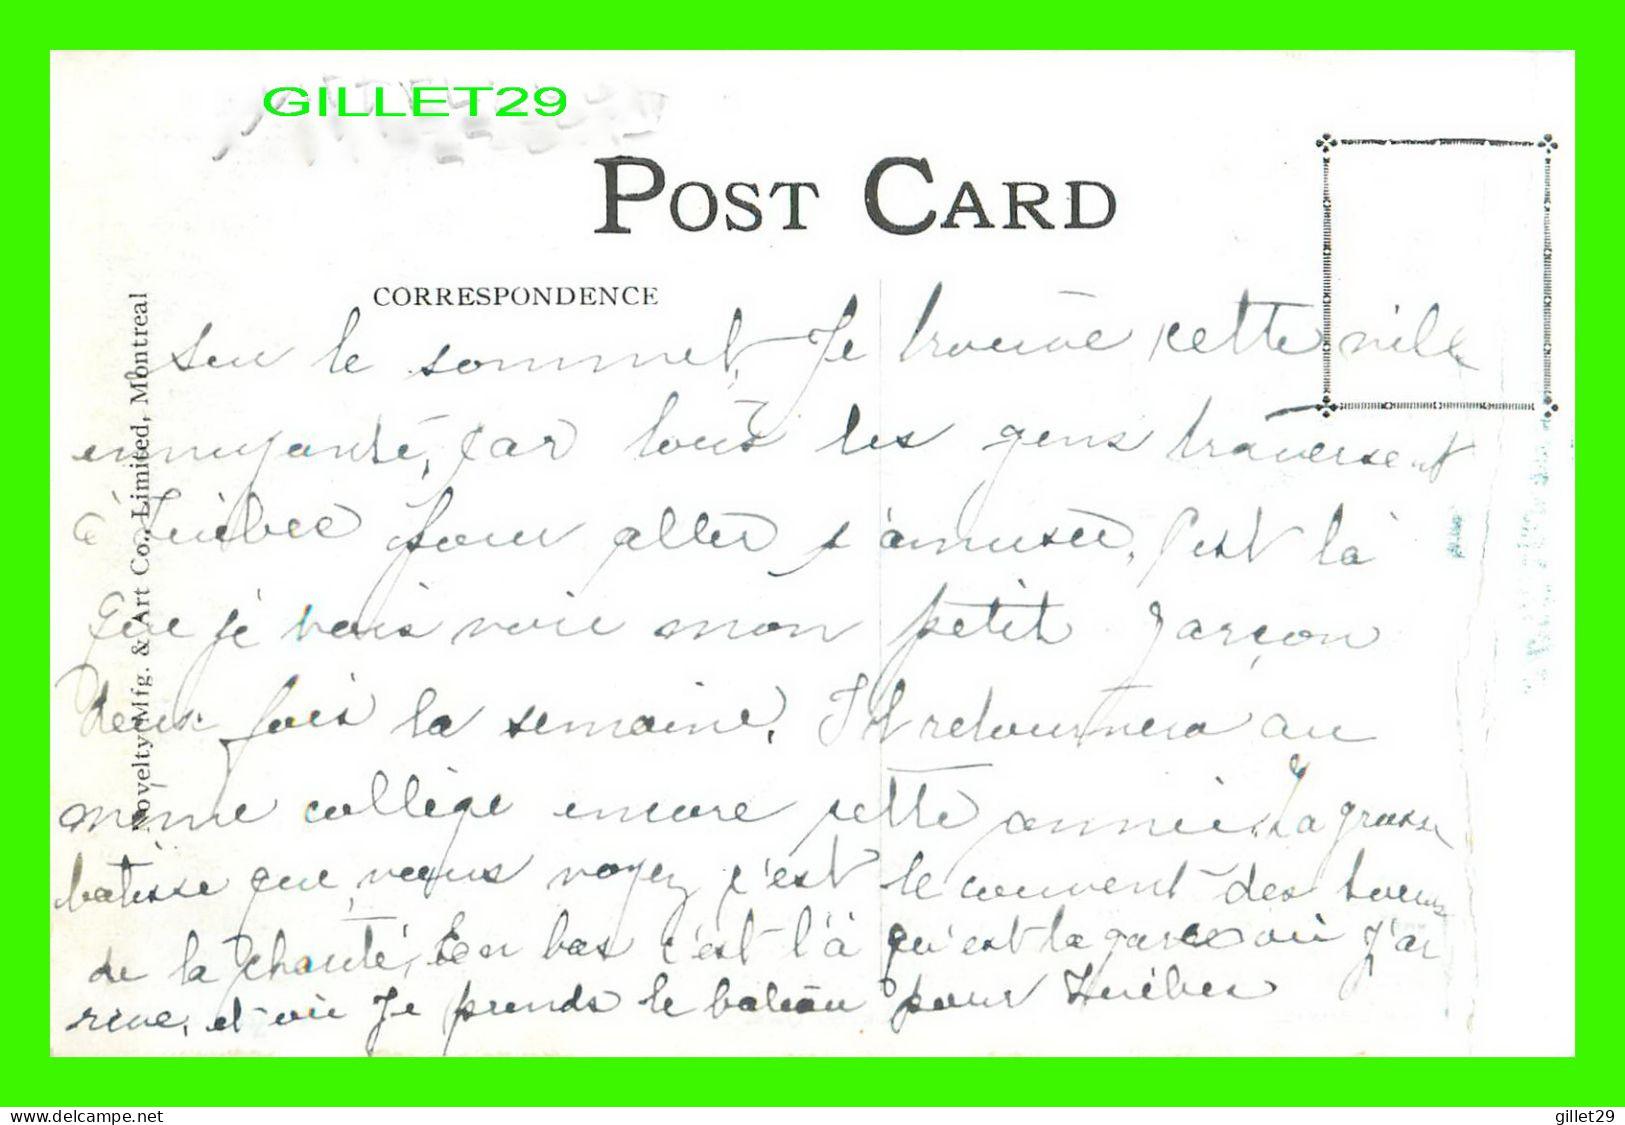 GILLET29
POST CARD
CORRESPONDENCE
Novelty Mfg. & Art Co., Limited, Montreal
Sur le sommet, Je trouve cette ville
ennuyante, Car tous les gens traversent
à Quebec pour aller s'amuser, C'est là
Que je vais voir mon petit garçon
deux fois la semaine, Il retournera au
même collège encore cette année, La grosse
batisse que vous voyez c'est le couvent des Soeurs
de la charité, En bas c'est l'à qu'est la gare où J'ar
rive, et où Je prends le bateau pour Québec
delcampe.net
gillet29